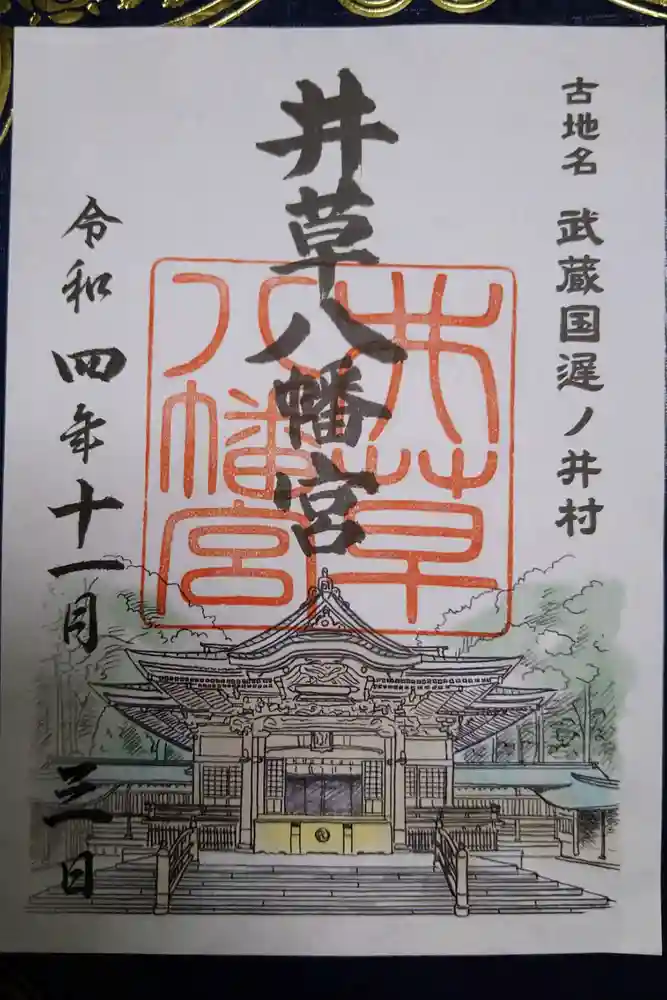 古地名 武蔵国遅ノ井村
井草八幡宮
井草
八幡宮
令和四年十一月三日